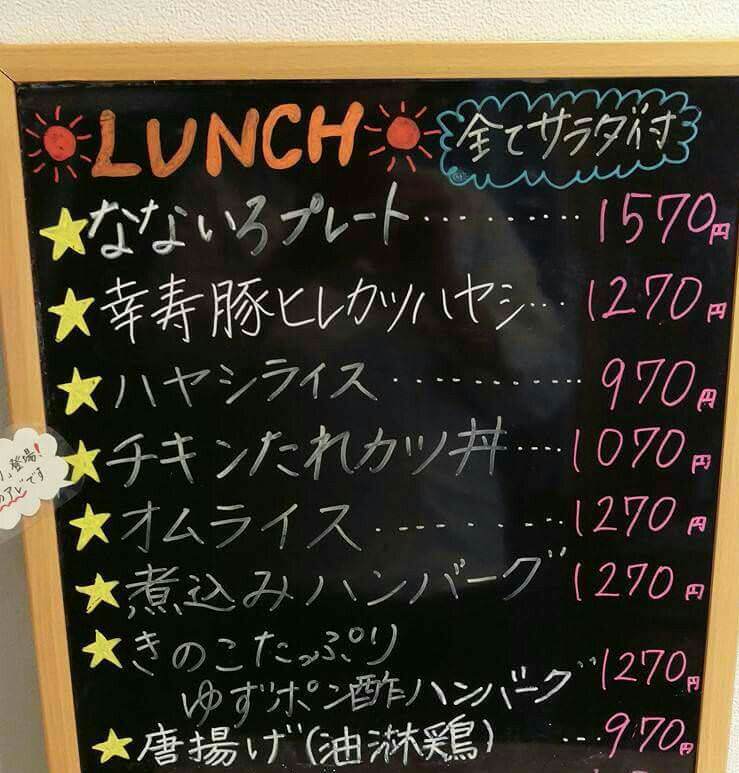 LUNCH 全てサラダ付
なないろプレート‥‥‥‥ 1570円
幸寿豚ヒレカツハヤシ‥‥ 1270円
ハヤシライス‥‥‥‥‥ 970円
チキンたれカツ丼‥‥ 1070円
オムライス‥‥‥‥‥ 1270円
煮込みハンバーグ‥ 1270円
きのこたっぷり
ゆずポン酢ハンバーグ‥ 1270円
唐揚げ(油淋鶏) ‥‥ 970円
登場!
です